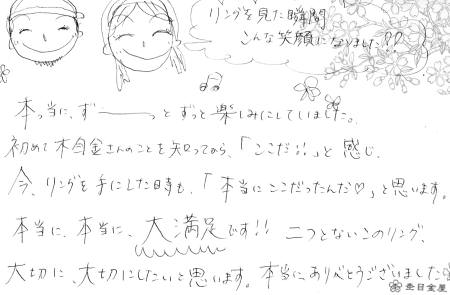 リングを見た瞬間
こんな笑顔になりました!?
本当に、ず――っとずっと楽しみにしていました。
初めて杢目金さんのことを知ってから、「ここだ!!」と感じ、
今、リングを手にした時も、「本当にここだったんだ♡」と思います。
本当に、本当に、大満足です!! 二つとないこのリング、
大切に、大切にしたいと思います。本当に、ありがとうございました
杢目金屋